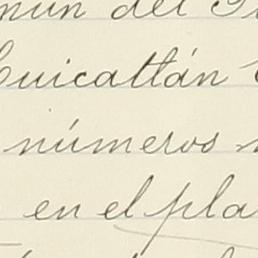 mún del
Cuicatlán
números
en el pla